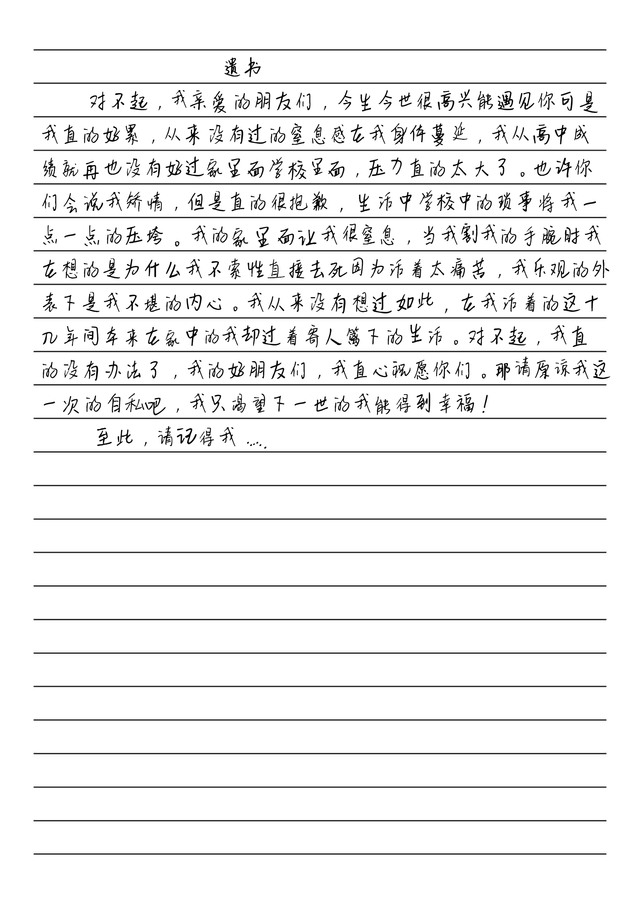 遗书
对不起，我亲爱的朋友们，今生今世很高兴能遇见你可是
我真的好累，从来没有过的窒息感在我身体蔓延，我从高中成
绩就再也没有好过家里面学校里面，压力真的太大了。也许你
们会说我矫情，但是真的很抱歉，生活中学校中的琐事将我一
点一点的压垮。我的家里面让我很窒息，当我割我的手腕时我
在想的是为什么我不索性直接去死因为活着太痛苦，我乐观的外
表下是我不堪的内心。我从来没有想过如此，在我活着的这十
几年间本来在家中的我却过着寄人篱下的生活。对不起，我真
的没有办法了，我的好朋友们，我真心祝愿你们。那请原谅我这
一次的自私吧，我只渴望下一世的我能得到幸福！
至此，请记得我……